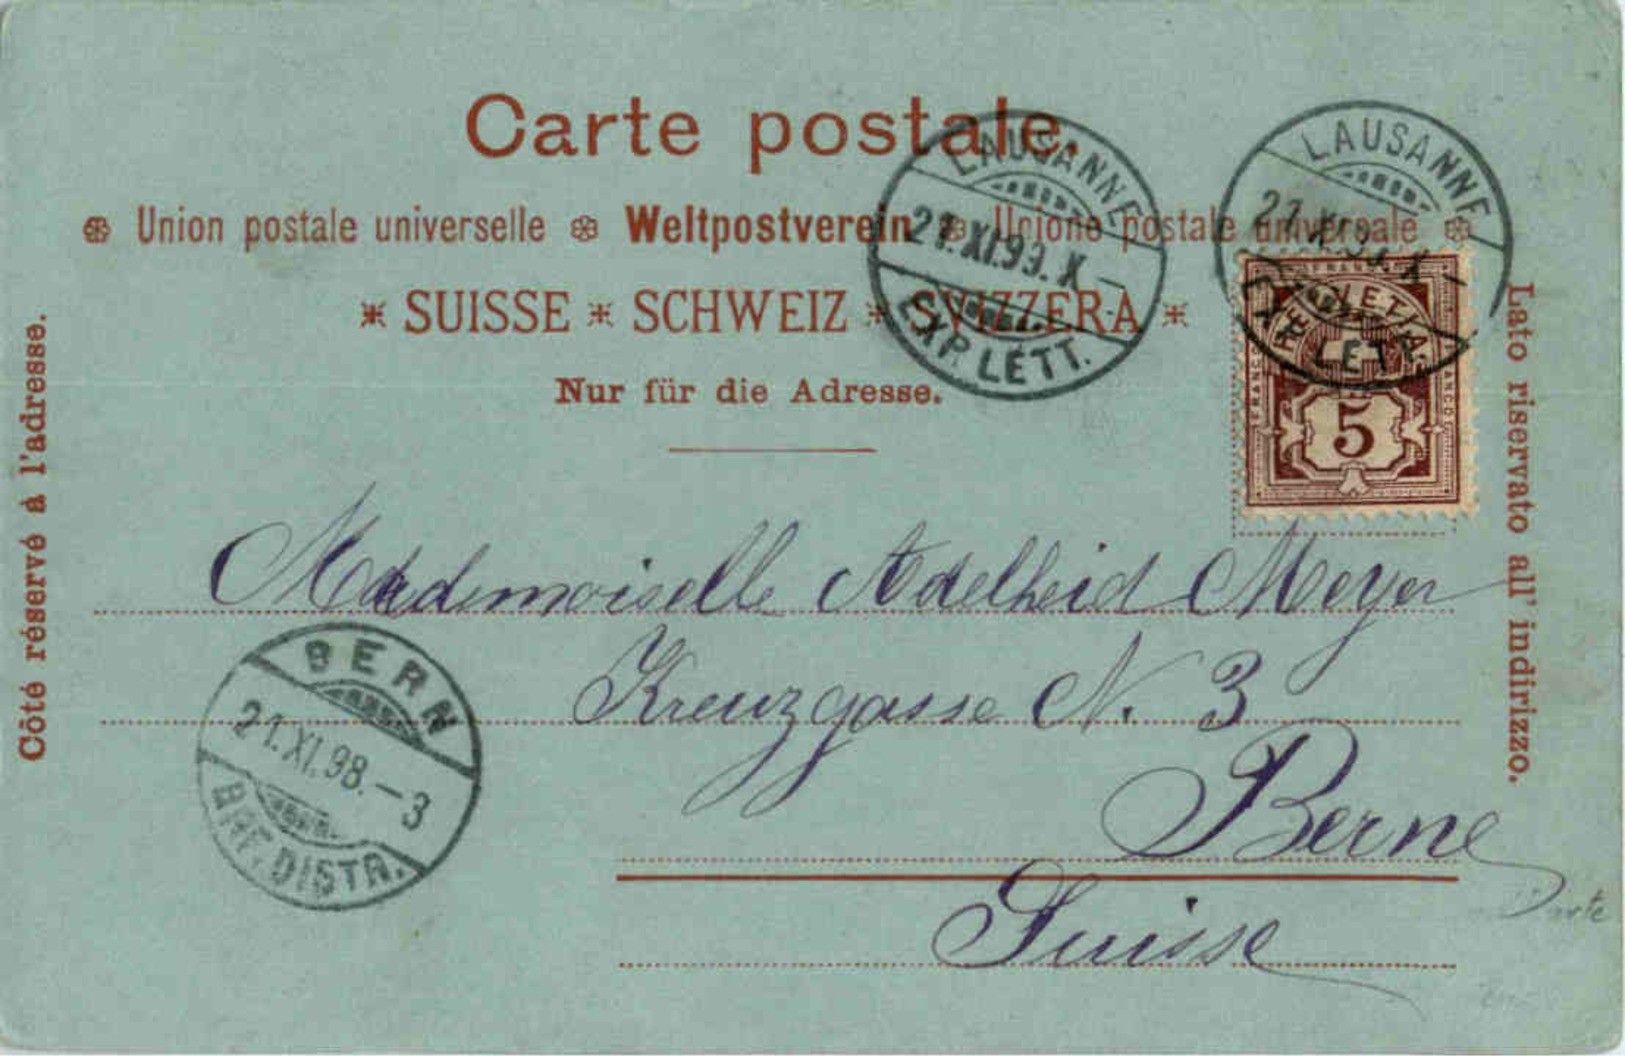 Carte postale.
Union postale universelle Weltpostverein Unione postale universale
SUISSE SCHWEIZ SVIZZERA
Nur für die Adresse.
Côté réservé à l'adresse.
Lato riservato all' indirizzo.
LAUSANNE
21.XI.99.X-
EXP. LÉTT.
LAUSANNE
X-
EXP. LÉTT.
FRANCO
HELVETIA
FRANCO
FRANCO
5
Mademoiselle Adelheid Meyer
Kreuzgasse N. 3
Berne
Suisse
BERN
21.XI.98.-3
BRF. DISTR.